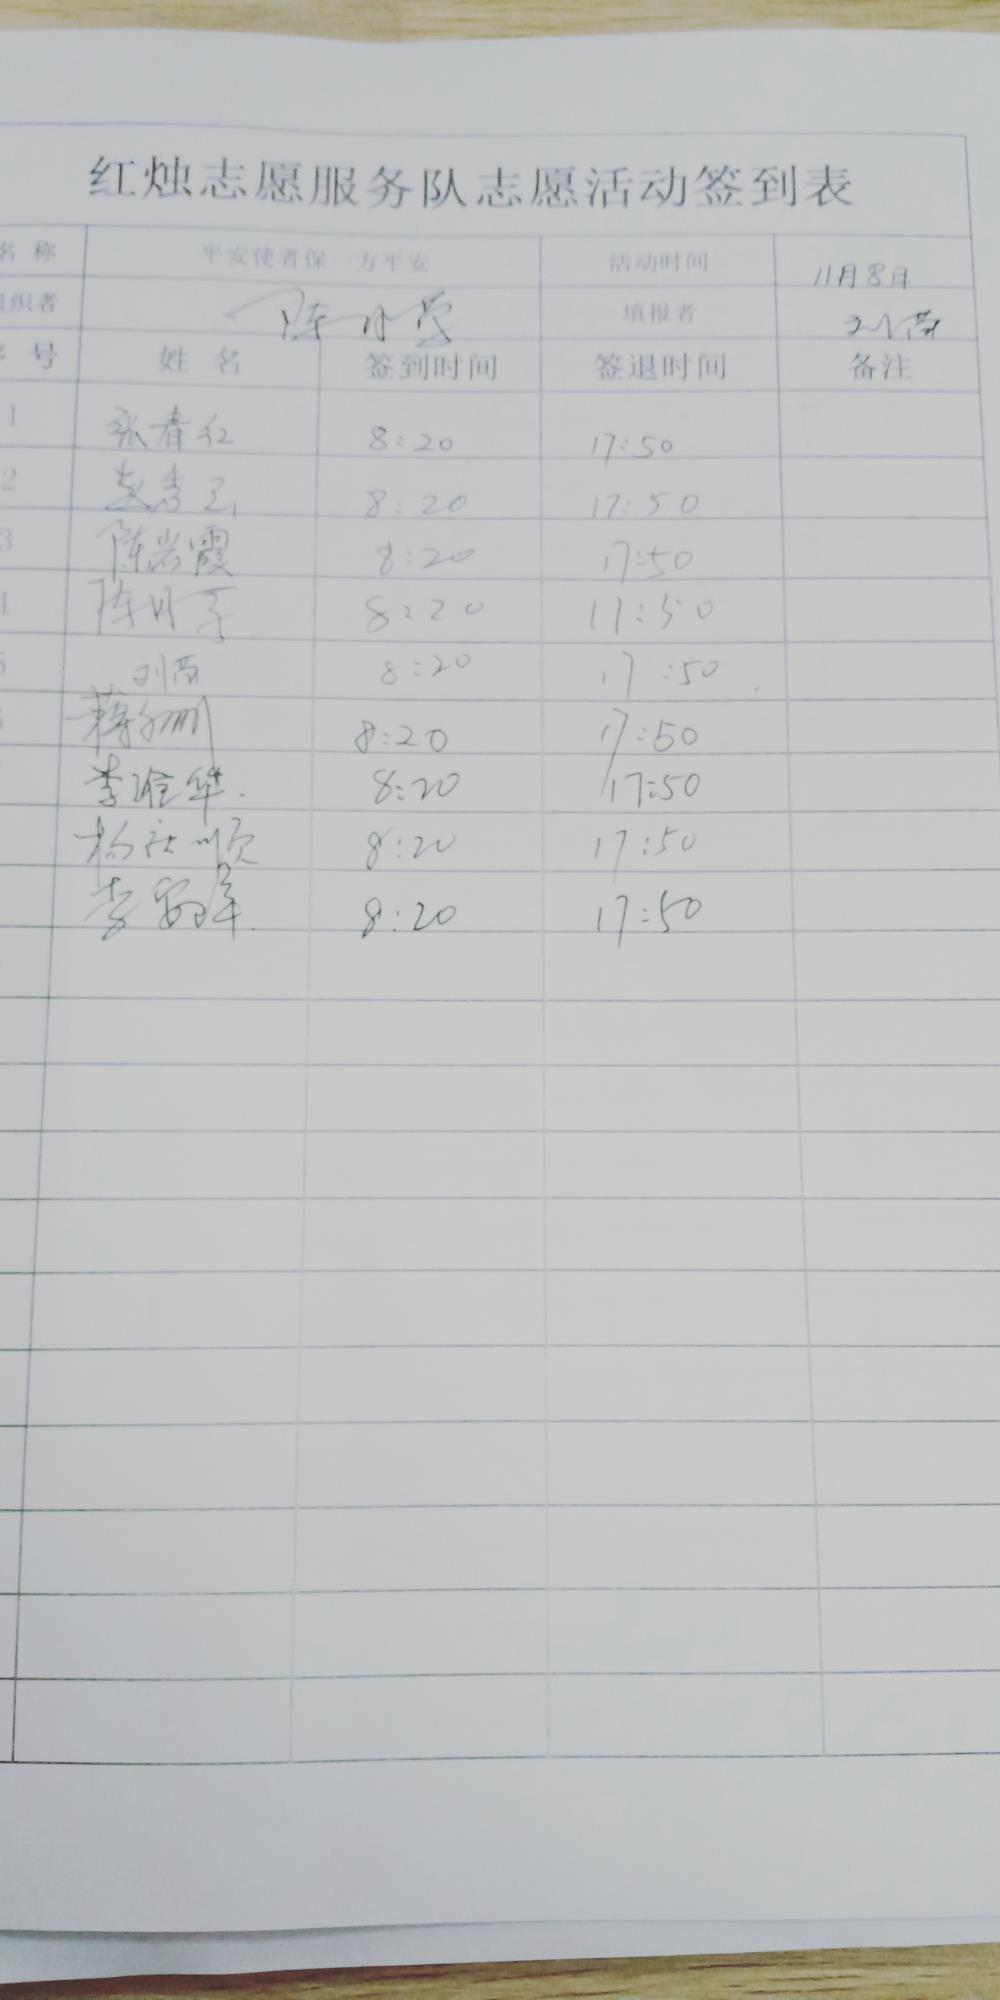 红烛志愿服务队志愿活动签到表
名称 平安使者保一方平安 活动时间 11月8日
组织者 陈月 填报者 刘
序号 姓名 签到时间 签退时间 备注
1 张春红 8:20 17:50
2 8:20 17:50
3 陈岩霞 8:20 17:50
4 陈月 8:20 17:50
5 刘 8:20 17:50
蒋 8:20 17:50
李 华 8:20 17:50
杨 顺 8:20 17:50
李 8:20 17:50